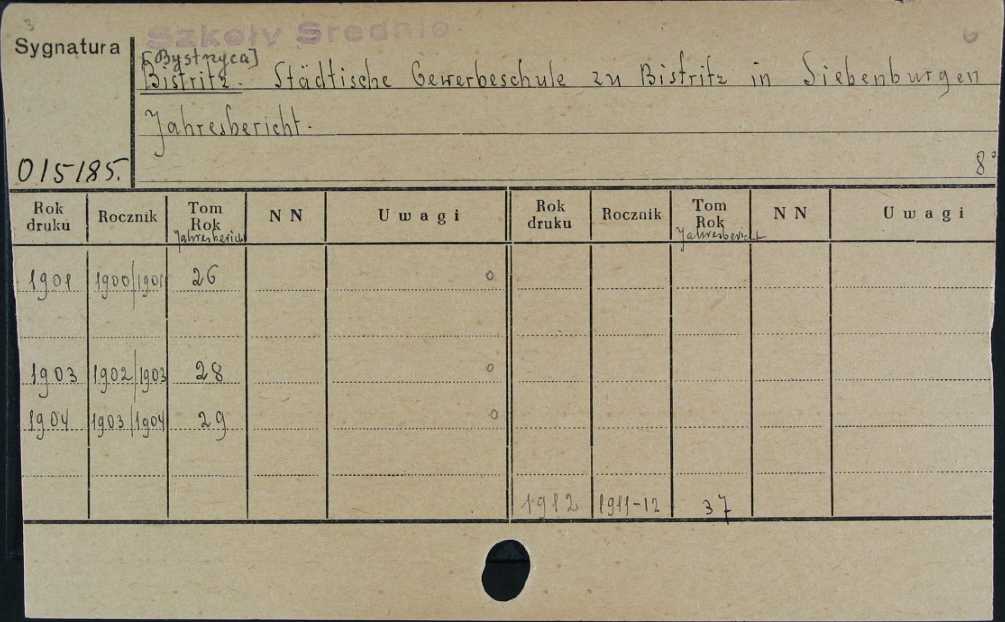 3
Szkoły Średnie
6
Sygnatura
[Bystrzyca]
Bistritz. Städtische Gewerbeschule zu Bistritz in Siebenburgen
Jahresbericht.
015185.
8°
Rok druku Rocznik Tom Rok Jahresbericht NN Uwagi Rok druku Rocznik Tom Rok Jahresbericht NN Uwagi
1901 1900/1901 26 o
1903 1902/1903 28 o
1904 1903/1904 29 o
1912 1911-12 37